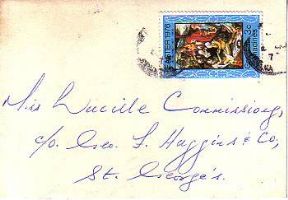 Miss Lucille Commissiong,
c/o Geo. F. Huggins & Co,
St. George's.